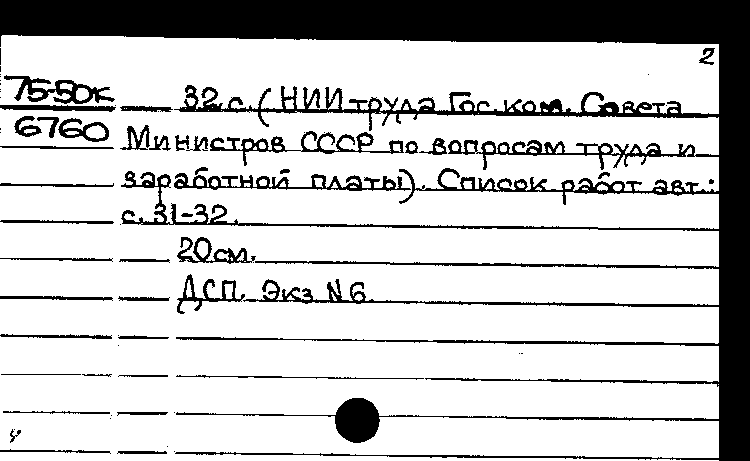 2
75-50к 32 с. (НИИ труда Гос. ком. Совета
6760 Министров СССР по вопросам труда и
заработной платы). Список работ авт.:
с. 31-32.
20 см.
ДСП. Экз N 6.